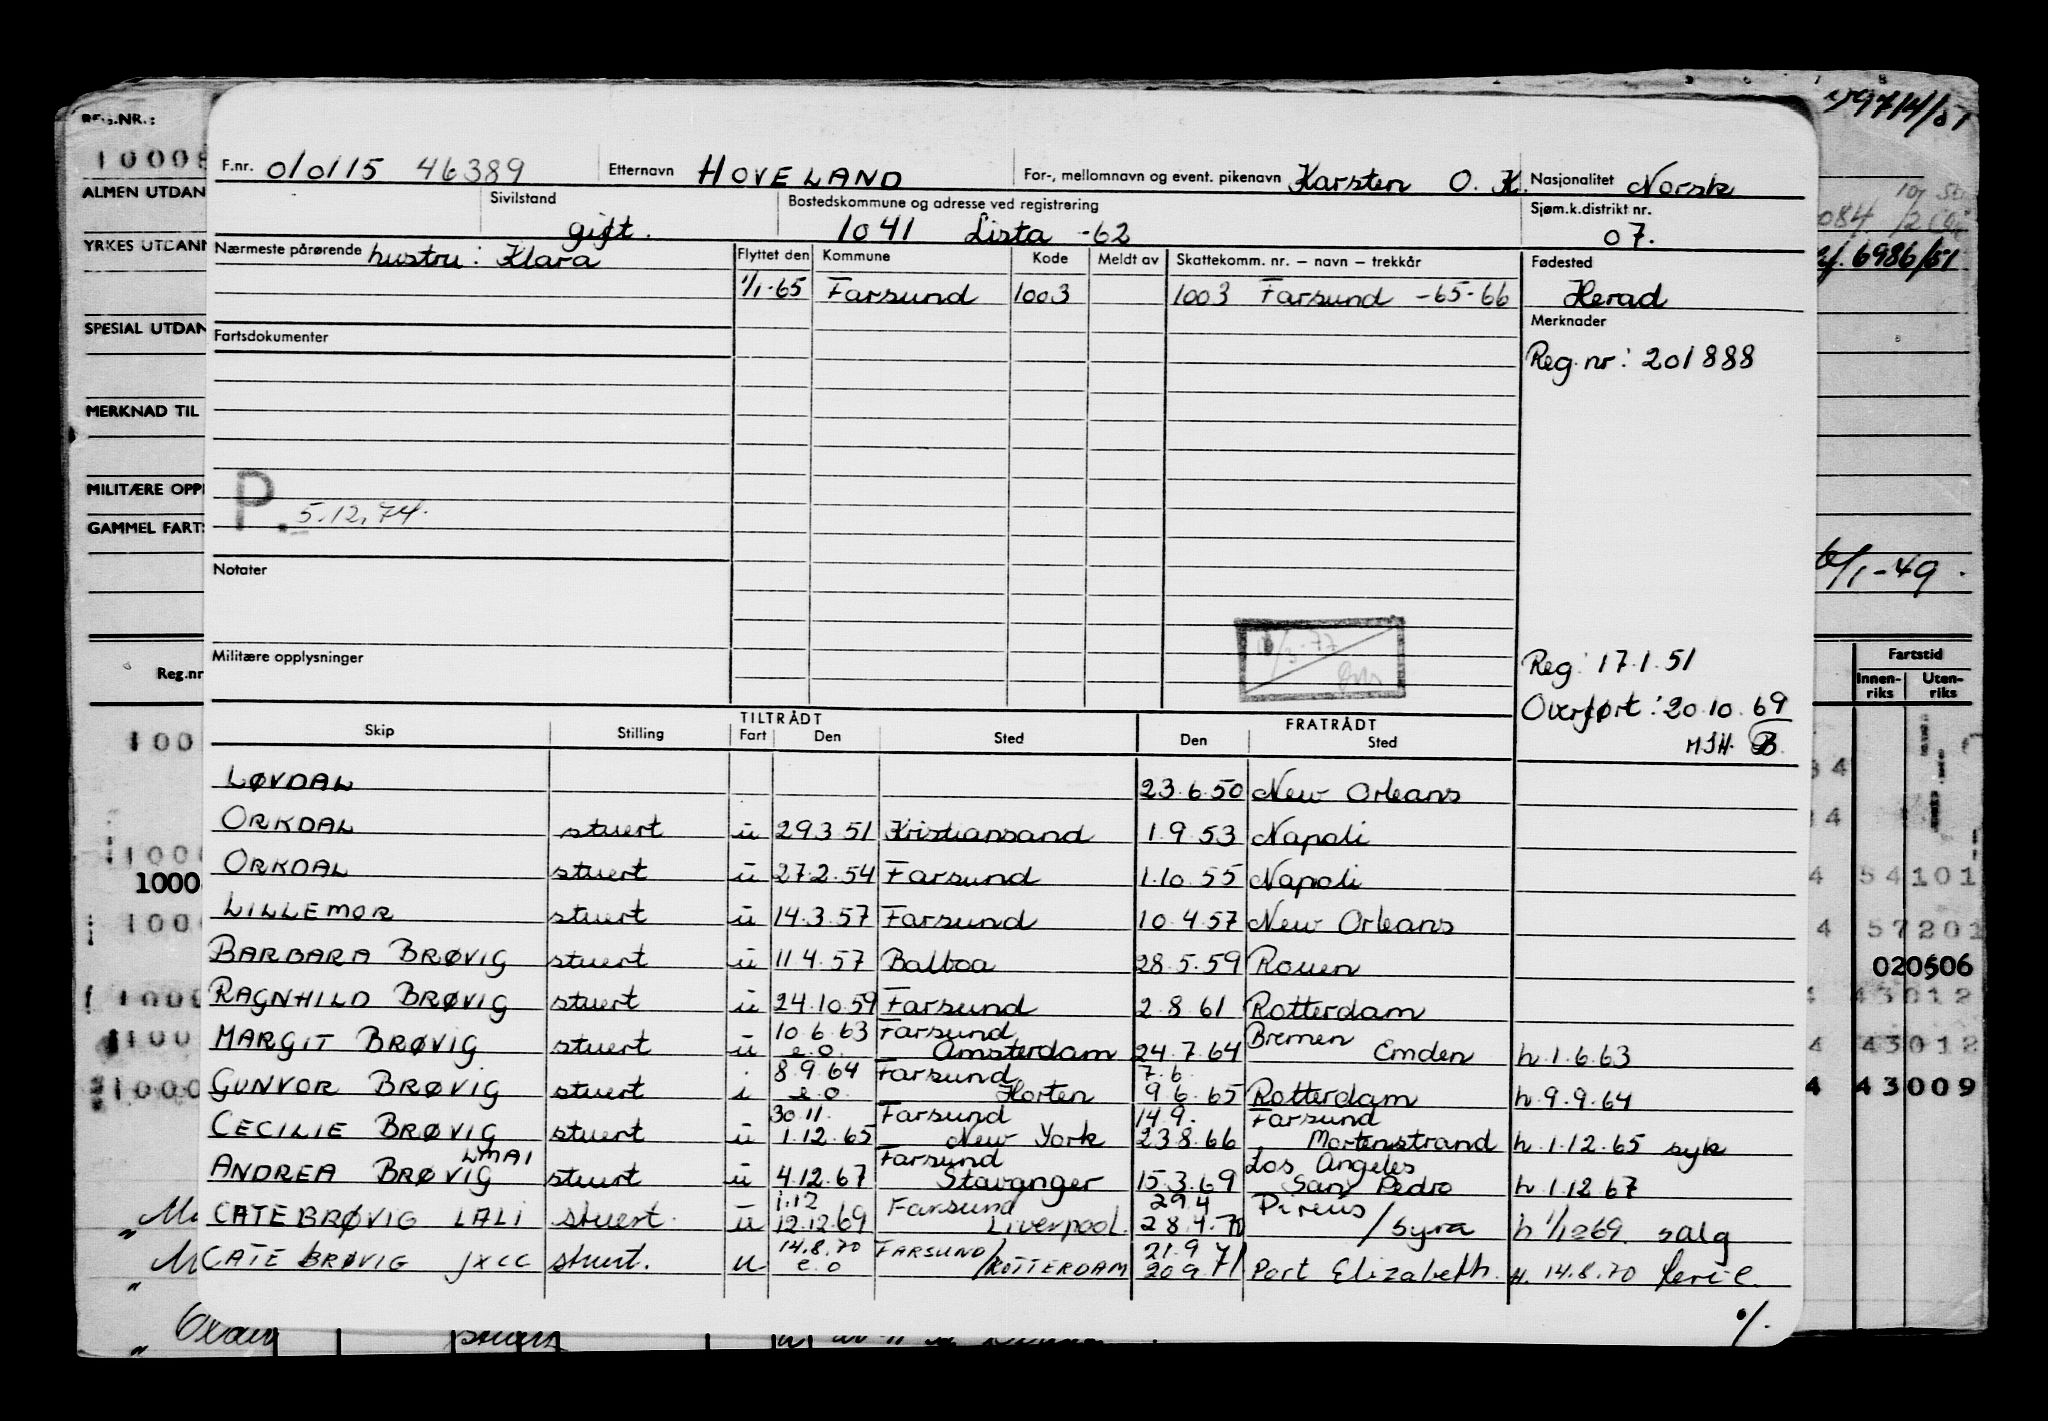 REG.NR.:
ALMEN UTDAN
YRKES UTDANN
SPESIAL UTDAN
MERKNAD TIL
MILITÆRE OPP
GAMMEL FART
Reg.nr
F.nr. 010115 46389 Etternavn HOVELAND For-, mellomnavn og event. pikenavn Karsten O. K. Nasjonalitet Norsk
Sivilstand gift. Bostedskommune og adresse ved registrering 1041 Lista -62 Sjøm.k.distrikt nr. 07.
Nærmeste pårørende hustru: Klara Flyttet den Kommune Kode Meldt av Skattekomm. nr. – navn – trekkår Fødested
1/1-65 Farsund 1003 1003 Farsund -65-66 Herad
Fartsdokumenter Merknader
Reg. nr: 201888
P. 5.12.74.
Notater
Militære opplysninger
Reg: 17.1.51
Overført: 20.10.69
MSH. B.
TILTRÅDT FRATRÅDT
Skip Stilling Fart Den Sted Den Sted
LØVDAL 23.6.50 New Orleans
ORKDAL stuert u 29.3.51 Kristiansand 1.9.53 Napoli
ORKDAL stuert u 27.2.54 Farsund 1.10.55 Napoli
LILLEMOR stuert u 14.3.57 Farsund 10.4.57 New Orleans
BARBARA BRØVIG stuert u 11.4.57 Balboa 28.5.59 Rouen
RAGNHILD BRØVIG stuert u 24.10.59 Farsund 2.8.61 Rotterdam
10.6.63 Farsund Bremen
MARGIT BRØVIG stuert u e.o. Amsterdam 24.7.64 Emden h.1.6.63
8.9.64 Farsund 7.6.
GUNVOR BRØVIG stuert i e.o. Horten 9.6.65 Rotterdam h.9.9.64
30.11. Farsund 14.9. Farsund
CECILIE BRØVIG stuert u 1.12.65 New York 23.8.66 Mortenstrand h.1.12.65 syk
LMAI Farsund Los Angeles
ANDREA BRØVIG stuert u 4.12.67 Stavanger 15.3.69 San Pedro h.1.12.67
1.12 Farsund 29.4 Pireus
CATE BRØVIG LALI stuert. u 12.12.69 Liverpool. 28.4.70 / Syra h 1/12 69. salg
14.8.70 FARSUND/ 21.9
CATE BRØVIG JXCC stuert. u e.o ROTTERDAM 20.9.71 Port Elizabeth. H. 14.8.70 ferie.
%.
6986/51
6/1-49.
Fartstid
Innen-riks Uten-riks
54101
57201
020506
43012
43012
43009